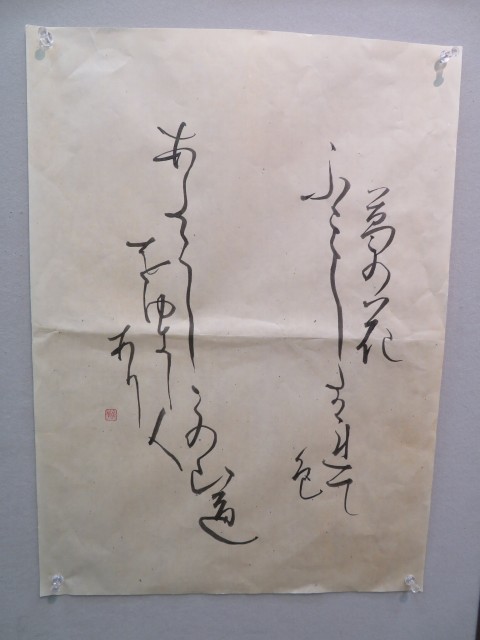 葛の花
ふみしたかれて
色
あたらしこの山道
をゆきし人
あり